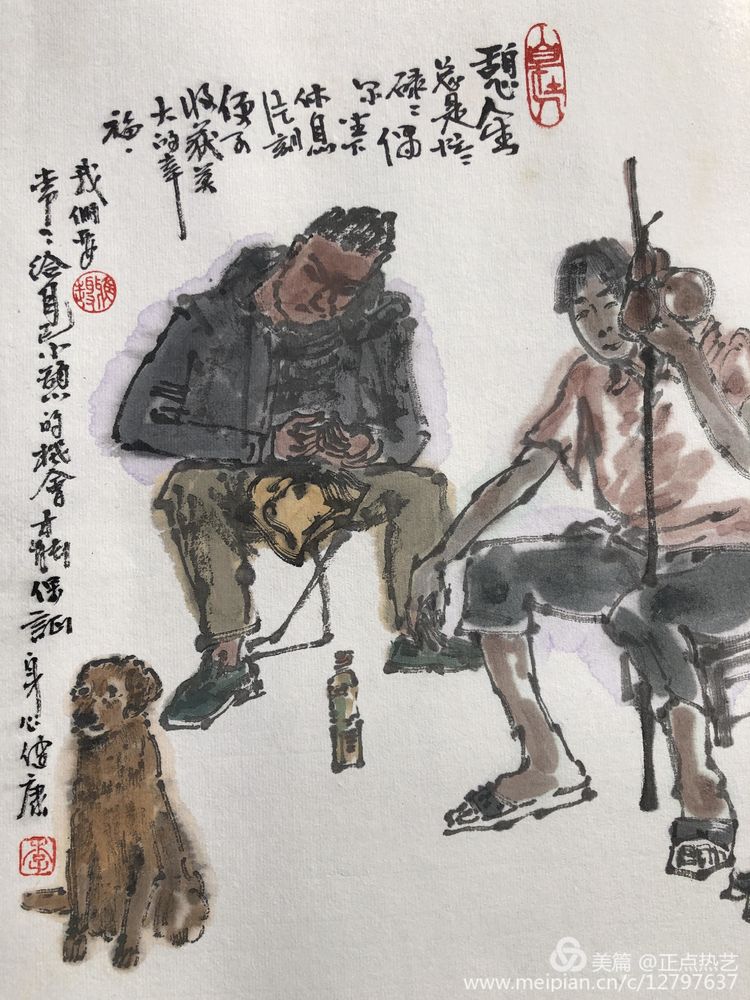 憩人生
总是忙〻
碌〻偶
尔坐下
休息
片刻
便可
收获莫
大的幸
福〻
我們要
常〻给自己小憩的機會才能保証身心健康
美篇 @正点热艺
www.meipian.cn/c/12797637